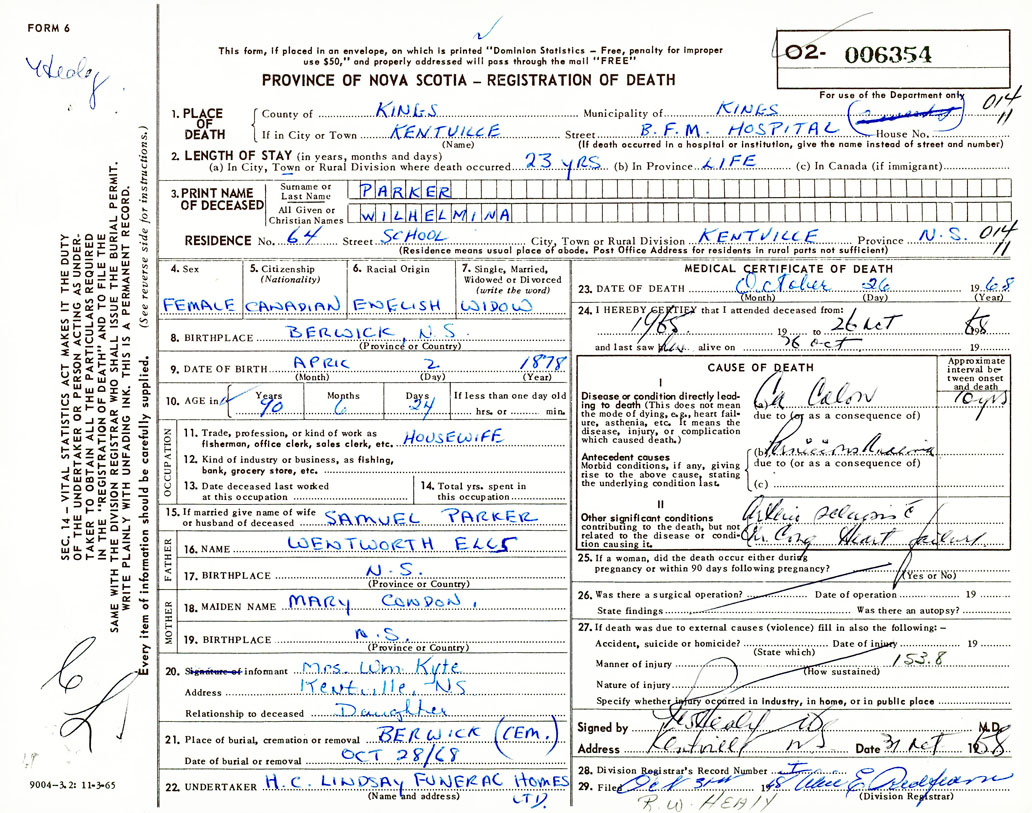 FORM 6
Healy
This form, if placed in an envelope, on which is printed "Dominion Statistics – Free, penalty for improper
use $50," and properly addressed will pass through the mail "FREE"
PROVINCE OF NOVA SCOTIA – REGISTRATION OF DEATH
02- 006354
For use of the Department only
014
11
1. PLACE OF DEATH
County of KINGS Municipality of KINGS
If in City or Town KENTVILLE Street B.F.M. HOSPITAL House No.
(Name) (If death occurred in a hospital or institution, give the name instead of street and number)
2. LENGTH OF STAY (in years, months and days)
(a) In City, Town or Rural Division where death occurred 23 YRS (b) In Province LIFE (c) In Canada (if immigrant)
3. PRINT NAME OF DECEASED
Surname or Last Name PARKER
All Given or Christian Names WILHELMINA
RESIDENCE No. 64 Street SCHOOL City, Town or Rural Division KENTVILLE Province N.S. 014
11
(Residence means usual place of abode. Post Office Address for residents in rural parts not sufficient)
4. Sex
FEMALE
5. Citizenship
(Nationality)
CANADIAN
6. Racial Origin
ENGLISH
7. Single, Married,
Widowed or Divorced
(write the word)
WIDOW
8. BIRTHPLACE BERWICK, N.S.
(Province or Country)
9. DATE OF BIRTH APRIL 2 1878
(Month) (Day) (Year)
10. AGE in Years Months Days If less than one day old
90 6 24 hrs. or min.
OCCUPATION
11. Trade, profession, or kind of work as
fisherman, office clerk, sales clerk, etc. HOUSEWIFE
12. Kind of industry or business, as fishing,
bank, grocery store, etc.
13. Date deceased last worked
at this occupation
14. Total yrs. spent in
this occupation
15. If married give name of wife
or husband of deceased SAMUEL PARKER
FATHER
16. NAME WENTWORTH ELLS
17. BIRTHPLACE N.S.
(Province or Country)
MOTHER
18. MAIDEN NAME MARY CONDON,
19. BIRTHPLACE N.S.
(Province or Country)
20. Signature of informant Mrs. Wm. Kyte
Address Kentville, NS
Relationship to deceased Daughter
21. Place of burial, cremation or removal BERWICK (CEM.)
Date of burial or removal OCT 28/68
22. UNDERTAKER H.C. LINDSAY FUNERAL HOMES
(Name and address) LTD.
MEDICAL CERTIFICATE OF DEATH
23. DATE OF DEATH October 26 1968
(Month) (Day) (Year)
24. I HEREBY CERTIFY that I attended deceased from:
1965 19 to 26 Oct 1968
and last saw her alive on 26 Oct 19
CAUSE OF DEATH
Approximate
interval be-
tween onset
and death
I
Disease or condition directly lead-
ing to death (This does not mean
the mode of dying, e.g., heart fail-
ure, asthenia, etc. It means the
disease, injury, or complication
which caused death.)
(a) Ca Colon 10 yrs
due to (or as a consequence of)
Antecedent causes
Morbid conditions, if any, giving
rise to the above cause, stating
the underlying condition last.
(b) Pernicious Anaemia
due to (or as a consequence of)
(c)
II
Other significant conditions
contributing to the death, but not
related to the disease or condi-
tion causing it.
Cong Heart failure
25. If a woman, did the death occur either during
pregnancy or within 90 days following pregnancy?
(Yes or No)
26. Was there a surgical operation? Date of operation 19
State findings Was there an autopsy?
27. If death was due to external causes (violence) fill in also the following: –
Accident, suicide or homicide? Date of injury 19
(State which)
Manner of injury 153.8
(How sustained)
Nature of injury
Specify whether injury occurred in industry, in home, or in public place
Signed by Healy M.D.
Address Kentville NS Date 31 Oct 1968
28. Division Registrar's Record Number
29. Filed Oct 31st 1968
(Division Registrar)
R.W. HEALY
SEC. 14 – VITAL STATISTICS ACT MAKES IT THE DUTY
OF THE UNDERTAKER OR PERSON ACTING AS UNDER-
TAKER TO OBTAIN ALL THE PARTICULARS REQUIRED
IN THE "REGISTRATION OF DEATH" AND TO FILE THE
SAME WITH THE DIVISION REGISTRAR WHO SHALL ISSUE THE BURIAL PERMIT.
WRITE PLAINLY WITH UNFADING INK. THIS IS A PERMANENT RECORD.
Every item of information should be carefully supplied. (See reverse side for instructions.)
9004-3.2: 11-3-65